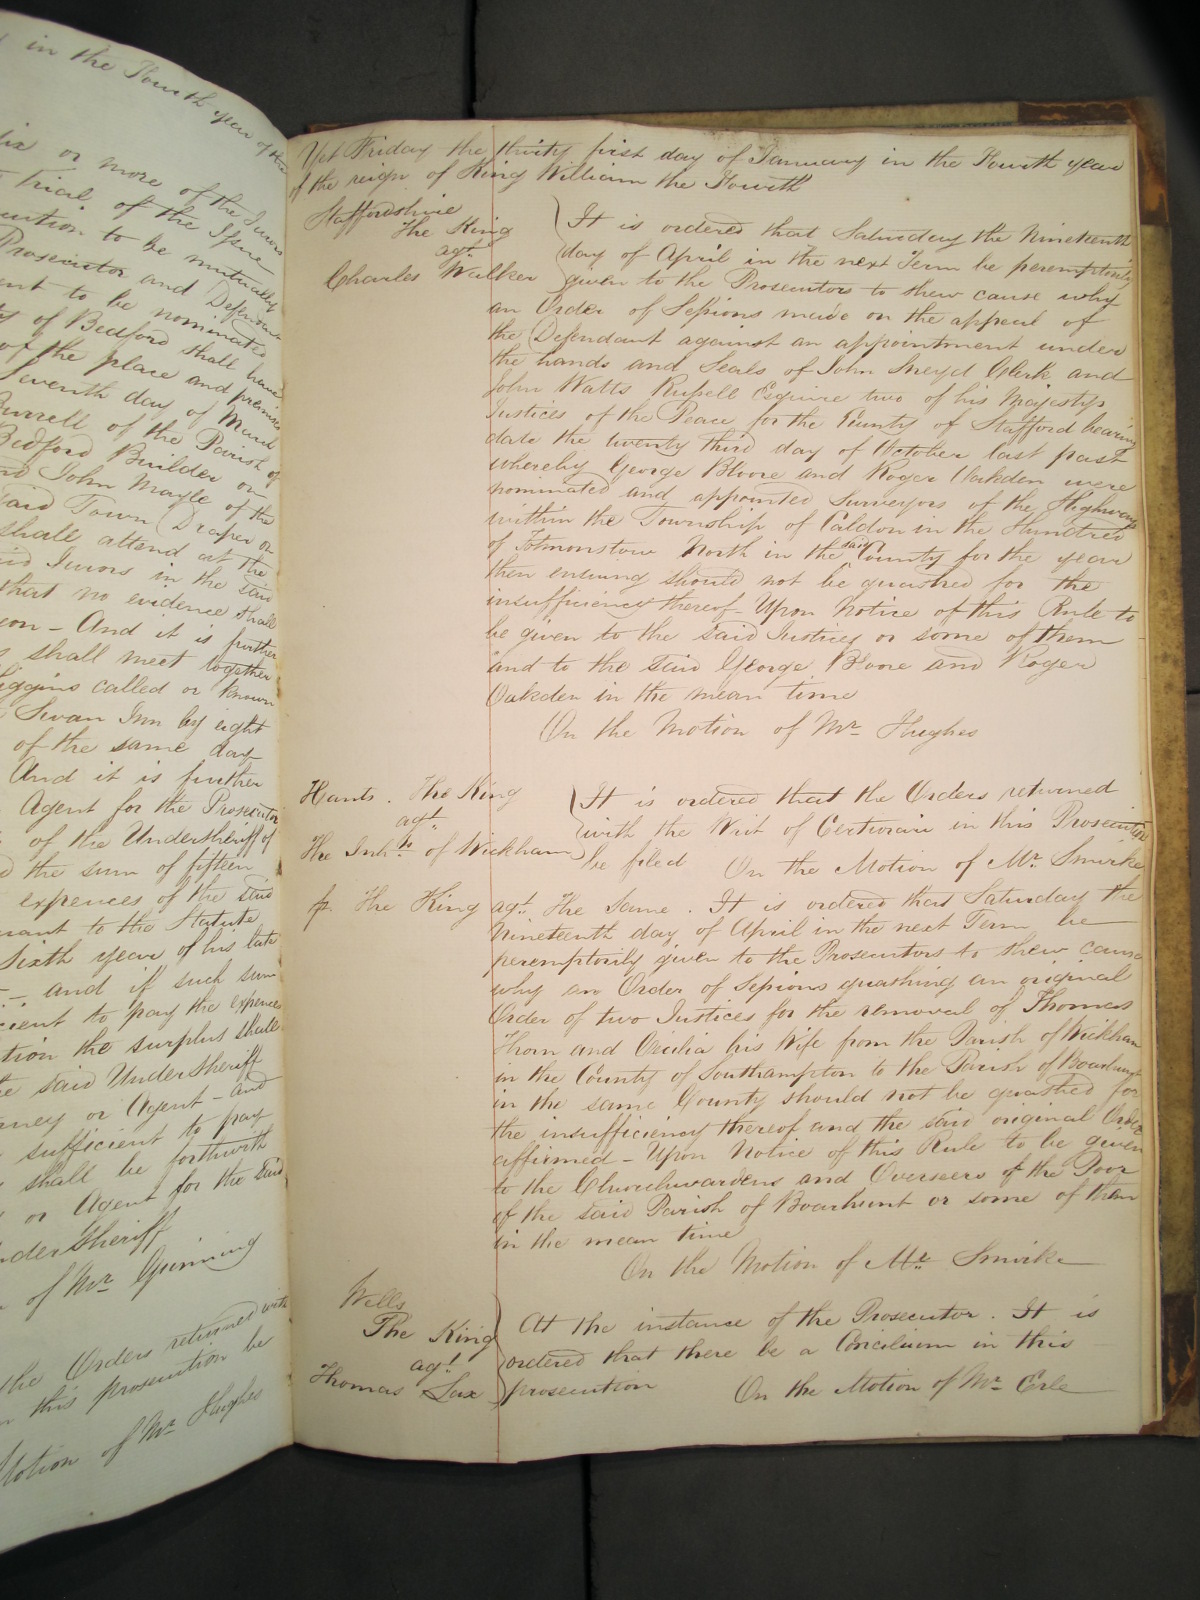 in the Fourth year of the
six or more of the Jurors
Trial of the Issue
to be mutually
Prosecutor and Defendant
to be nominated
of Bedford shall have
of the place and premises
Seventh day of March
Burrell of the Parish of
Bedford Builder or
and John Mayle of the
said Town Draper or
shall attend at the
Jurors in the said
that no evidence shall
And it is further
shall meet together
called or known
Swan Inn by eight
of the same day
And it is further
Agent for the Prosecutor
of the Undersheriff of
the sum of fifteen
expences of the said
to the Statute
Sixth year of his late
and if such sum
to pay the expences
the surplus shall
the said Undersheriff
or Agent – and
sufficient to pay
shall be forthwith
or Agent for the said
Undersheriff
of Mr. Gunning
the Orders returned with
in this prosecution be
Motion of Mr. Hughes
Yet Friday the thirty first day of January in the Fourth year
of the reign of King William the Fourth
Staffordshire
The King
agt.
Charles Walker
It is ordered that Saturday the Nineteenth
day of April in the next Term be peremptorily
given to the Prosecutors to shew cause why
an Order of Sessions made on the appeal of
the Defendant against an appointment under
the hands and Seals of John Sneyd Clerk and
John Watts Russell Esquire two of his Majestys
Justices of the Peace for the County of Stafford bearing
date the twenty third day of October last past
whereby George Bloore and Roger Oakden were
nominated and appointed Surveyors of the Highways
within the Township of Caldon in the Hundred
of Totmonstow North in the said County for the year
then ensuing should not be quashed for the
insufficiency thereof – Upon Notice of this Rule to
be given to the said Justices or some of them
and to the said George Bloore and Roger
Oakden in the mean time
On the Motion of Mr. Hughes
Hants. The King
agt.
The Inhts. of Wickham
It is ordered that the Orders returned
with the Writ of Certiorari in this Prosecution
be filed On the Motion of Mr. Smirke
The King agt. The Same. It is ordered that Saturday the
Nineteenth day of April in the next Term be
peremptorily given to the Prosecutors to shew cause
why an Order of Sessions quashing an original
Order of two Justices for the removal of Thomas
Thorn and Cecilia his Wife from the Parish of Wickham
in the County of Southampton to the Parish of Boarhunt
in the same County should not be quashed for
the insufficiency thereof and the said original Order
affirmed – Upon Notice of this Rule to be given
to the Churchwardens and Overseers of the Poor
of the said Parish of Boarhunt or some of them
in the mean time
On the Motion of Mr. Smirke
Wells
The King
agt.
Thomas Sax
At the instance of the Prosecutor. It is
ordered that there be a Concilium in this
prosecution On the Motion of Mr. Erle